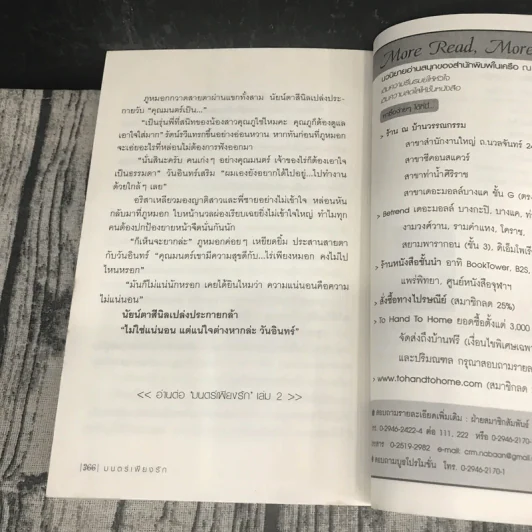 ภูหมอกกวาดสายตาผ่านแขกทั้งสาม นัยน์ตาสีนิลเปล่งประ-
กายวับ “คุณมนตร์เป็น...”
“เป็นรุ่นพี่ที่สนิทของน้องสาวคุณภูใช่ไหมคะ คุณภูก็ต้องดูแล
เอาใจใส่มาก” รัตน์รวีแทรกขึ้นอย่างอ่อนหวาน หากทันก่อนที่ภูหมอก
จะเอ่ยอะไรที่หล่อนไม่ต้องการฟังออกมา
“นั่นสินะครับ คนเก่งๆ อย่างคุณมนตร์ เจ้าของไร่ก็ต้องเอาใจ
เป็นธรรมดา” วันอินทร์เสริม “ผมเองยังอยากได้ไปอยู่...ไปทำงาน
ด้วยใกล้ๆ เลย”
อริสาเหลียวมองญาติสาวและพี่ชายอย่างไม่เข้าใจ หล่อนหัน
กลับมาที่ภูหมอก ใบหน้านวลผ่องเรียบเฉยยิ่งไม่เข้าใจใหญ่ ทำไมทุก
คนต้องปกป้องยายหน้าจืดนั่นกันนัก
“ก็เห็นจะยากล่ะ” ภูหมอกค่อยๆ เหยียดยิ้ม ประสานสายตา
กับวันอินทร์ “คุณมนตร์เขามีความสุขดีกับ...ไร่เพียงหมอก คงไม่ไป
ไหนหรอก”
“มันก็ไม่แน่นักหรอก เคยได้ยินไหมว่า ความแน่นอนคือความ
ไม่แน่นอน”
นัยน์ตาสีนิลเปล่งประกายกล้า
“ไม่ใช่แน่นอน แต่แน่ใจต่างหากล่ะ วันอินทร์”
<< อ่านต่อ ‘มนตร์เพียงรัก’ เล่ม 2 >>
|366| มนตร์เพียงรัก
More Read, More
นวนิยายอ่านสนุกของสำนักพิมพ์ในเครือ ณ
> ร้าน ณ บ้านวรรณกรรม
สาขาสำนักงานใหญ่ ถ.นวลจันทร์ 24
สาขาซีคอนสแควร์
สาขาท่าน้ำศิริราช
สาขาเดอะมอลล์บางแค ชั้น G (ตร
> Befriend เดอะมอลล์ บางกะปิ, บางแค, ท่
งามวงศ์วาน, รามคำแหง, โคราช,
สยามพารากอน (ชั้น 3), ดิเอ็มโพเรี
> ร้านหนังสือชั้นนำ อาทิ BookTower, B2S,
แพร่พิทยา, ศูนย์หนังสือจุฬาฯ
> สั่งซื้อทางไปรษณีย์ (สมาชิกลด 25%)
> To Hand To Home ยอดซื้อตั้งแต่ 3,000
จัดส่งถึงบ้านฟรี (เงื่อนไขพิเศษเฉพา
และปริมณฑล กรุณาสอบถามรายล
> www.tohandtohome.com (สมาชิกลด
สอบถามรายละเอียดเพิ่มเติม : ฝ่ายสมาชิกสัมพันธ์
ร. 0-2946-2422-4 ต่อ 111, 222 หรือ 0-2946-2170-
สาร 0-2519-2982 e-mail: crm.nabaan@gmail
สอบถามบูธโปรโมชั่น โทร. 0-2946-2170-1